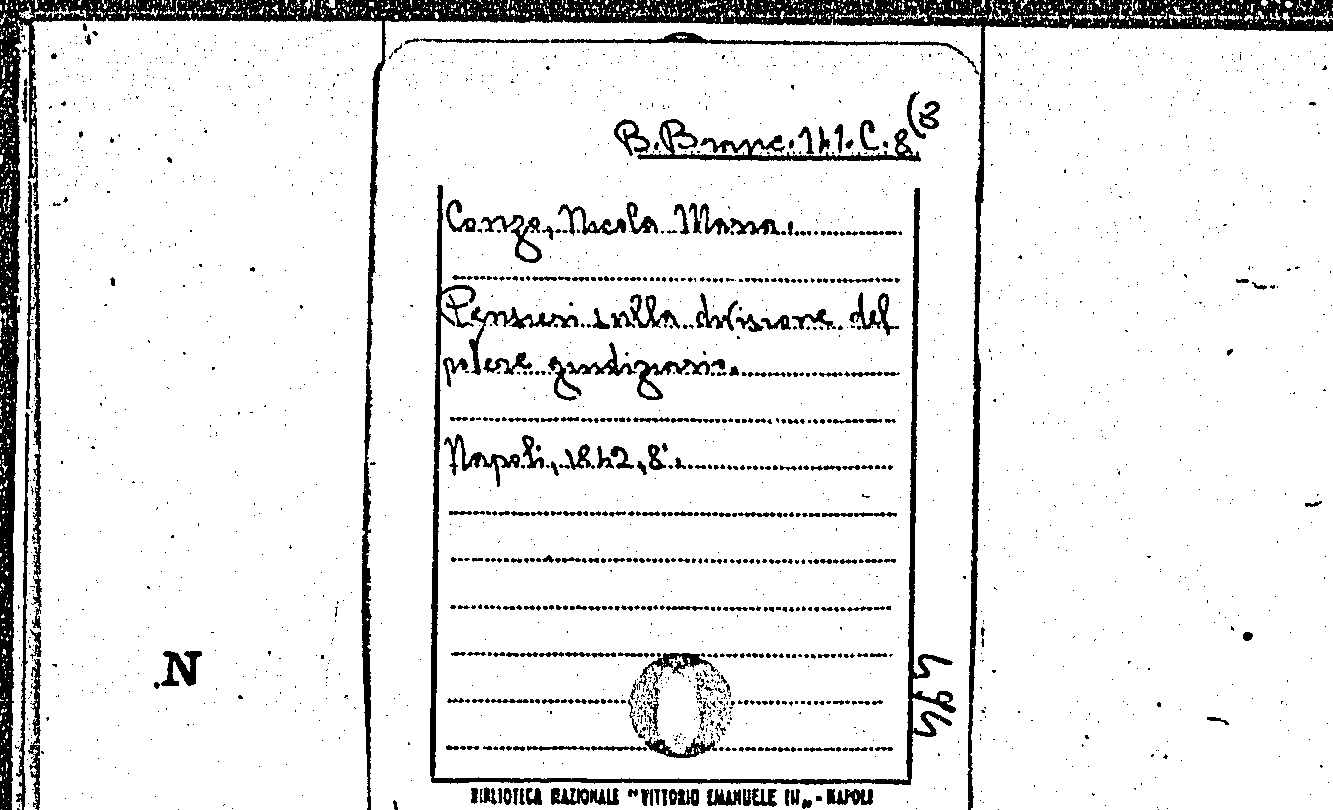 B. Branc. 141. C. 8(3
Conzo, Nicola Maria.
Pensieri sulla divisione del
potere giudiziario.
Napoli, 1842, 8°.
N
BIBLIOTECA NAZIONALE "VITTORIO EMANUELE III„ - NAPOLI